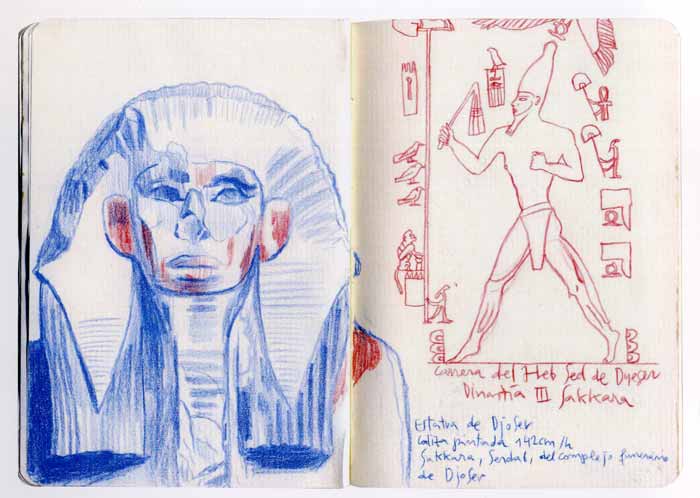 Carrera del Heb Sed de Dyeser
Dinastía III Sakkara
Estatua de Djoser
Caliza pintada 142cm/h
Sakkara, Serdab, del complejo funerario
de Djoser